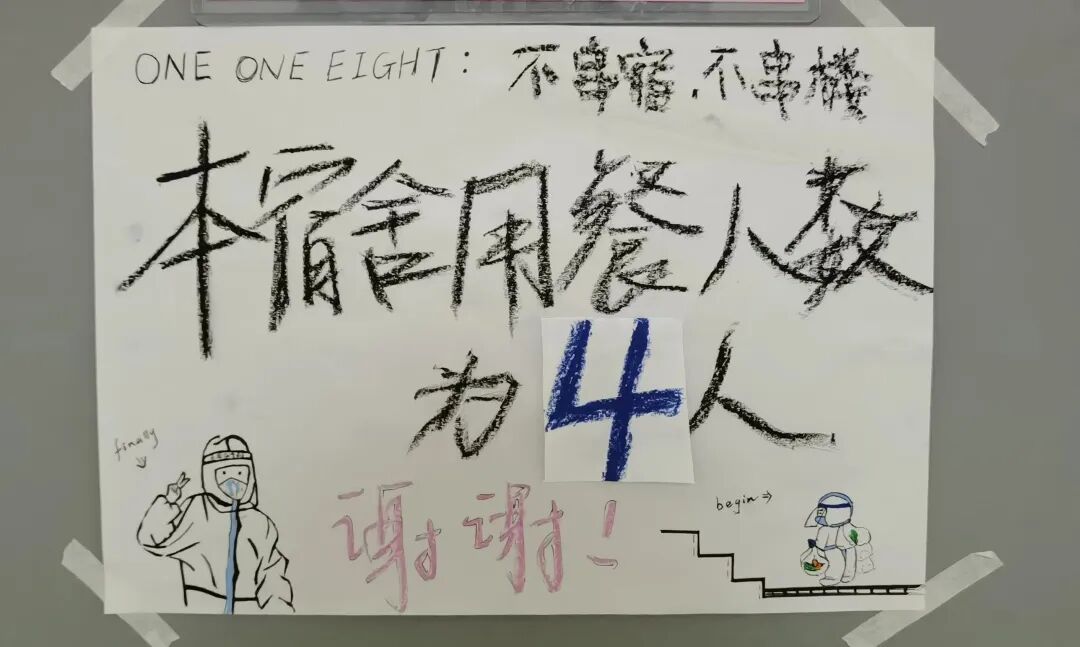 ONE ONE EIGHT：不串宿.不串楼
本宿舍用餐人数
为4人
finally
谢谢！
begin